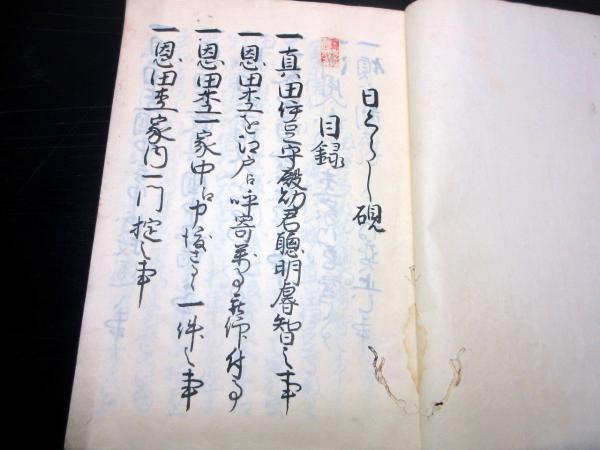 日くらし硯
目録
一真田伊豆守殿幼君聰明睿智之事
一恩田杢を江戸江呼寄萬事被仰付事
一恩田杢一家中江申渡さるゝ一件之事
一恩田杢家内一門掟之事